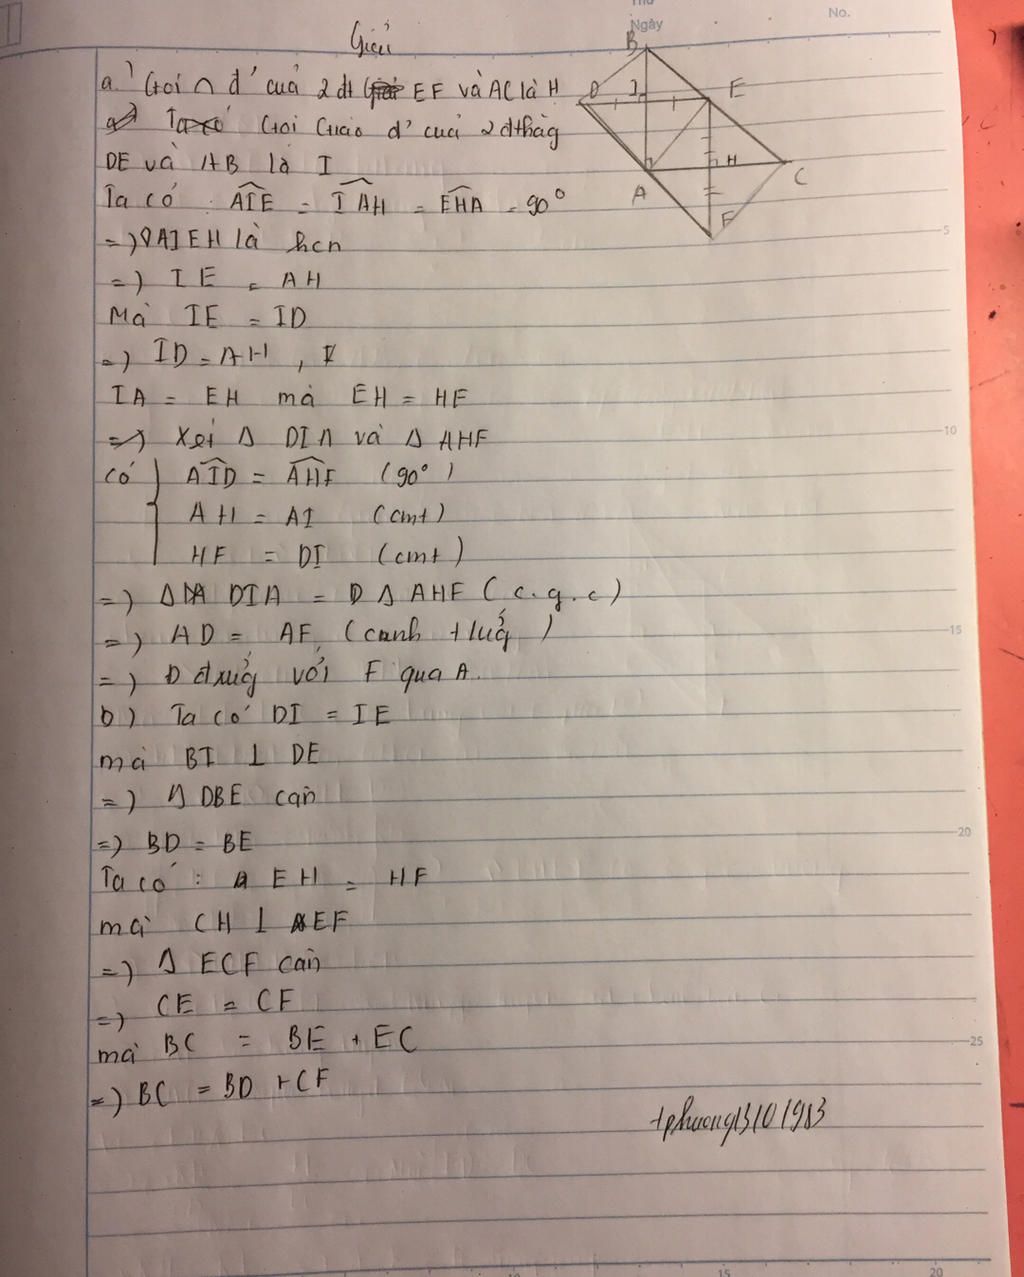 Thứ
Ngày
No.
Giải
a) Gọi ∩ đ' của 2 đt EF và AC là H
Gọi Giao đ' của 2 đthảg
DE và AB là I
Ta có : AIE = IAH = EHA = 90°
=> ◊AIEH là hcn
=> IE = AH
Mà IE = ID
=> ID = AH ,
IA = EH mà EH = HF
=> Xét Δ DIA và Δ AHF
có AID = AHF (90°)
AH = AI (cmt)
HF = DI (cmt)
=> Δ DIA = Δ AHF (c.g.c)
=> AD = AF (cạnh tưởg)
=> D đxứg với F qua A.
b) Ta có DI = IE
mà BI ⊥ DE
=> Δ DBE cân
=> BD = BE
Ta có : EH = HF
mà CH ⊥ EF
=> Δ ECF cân
=> CE = CF
mà BC = BE + EC
=> BC = BD + CF
tphuong13101983
B
D
I
E
A
H
C
F
5
10
15
20
25
10
15
20